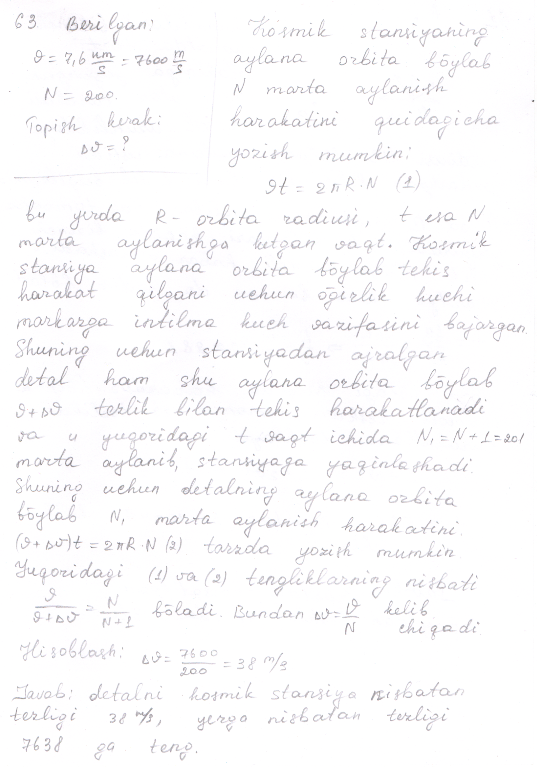 63 Berilgan:
ϑ = 7,6 km/s = 7600 m/s
N = 200.
Topish kerak:
Δϑ = ?
Kosmik stansiyaning
aylana orbita bōylab
N marta aylanish
harakatini quidagicha
yozish mumkin;
ϑt = 2πR·N (1)
bu yerda R - orbita radiusi, t esa N
marta aylanishga ketgan vaqt. Kosmik
stansiya aylana orbita bōylab tekis
harakat qilgani uchun ōgirlik kuchi
markarga intilma kuch vazifasini bajargan.
Shuning uchun stansiyadan ajralgan
detal ham shu aylana orbita bōylab
ϑ+Δϑ tezlik bilan tekis harakatlanadi
va u yuqoridagi t vaqt ichida N₁ = N + 1 = 201
marta aylanib, stansiyaga yaqinlashadi.
Shuning uchun detalning aylana orbita
bōylab N₁ marta aylanish harakatini.
(ϑ+Δϑ)t = 2πR·N (2) tarzda yozish mumkin
Yuqoridagi (1) va (2) tengliklarning nisbati
ϑ/(ϑ+Δϑ) = N/(N+1) bōladi. Bundan Δϑ = ϑ/N kelib
chiqadi.
Hisoblash: Δϑ = 7600/200 = 38 m/s
Javob: detalni kosmik stansiya nisbatan
tezligi 38 m/s, yerga nisbatan tezligi
7638 ga teng.